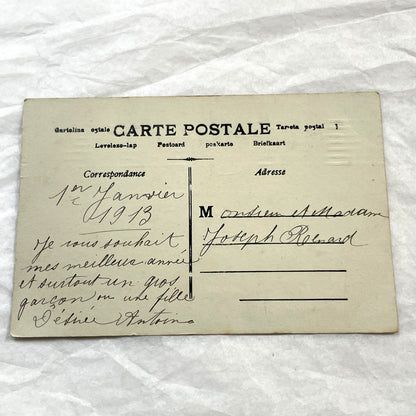 CARTE POSTALE
Cartolina ostale
Tarjeta postal 1
Levelezo-lap Postcard poskarte Briefkaart
Correspondance
Adresse
1er Janvier
1913
Je vous souhait
mes meilleur année
et surtout un gros
garçon ou une fille
Désirée Antoine
Monsieur et Madame
Joseph Renard